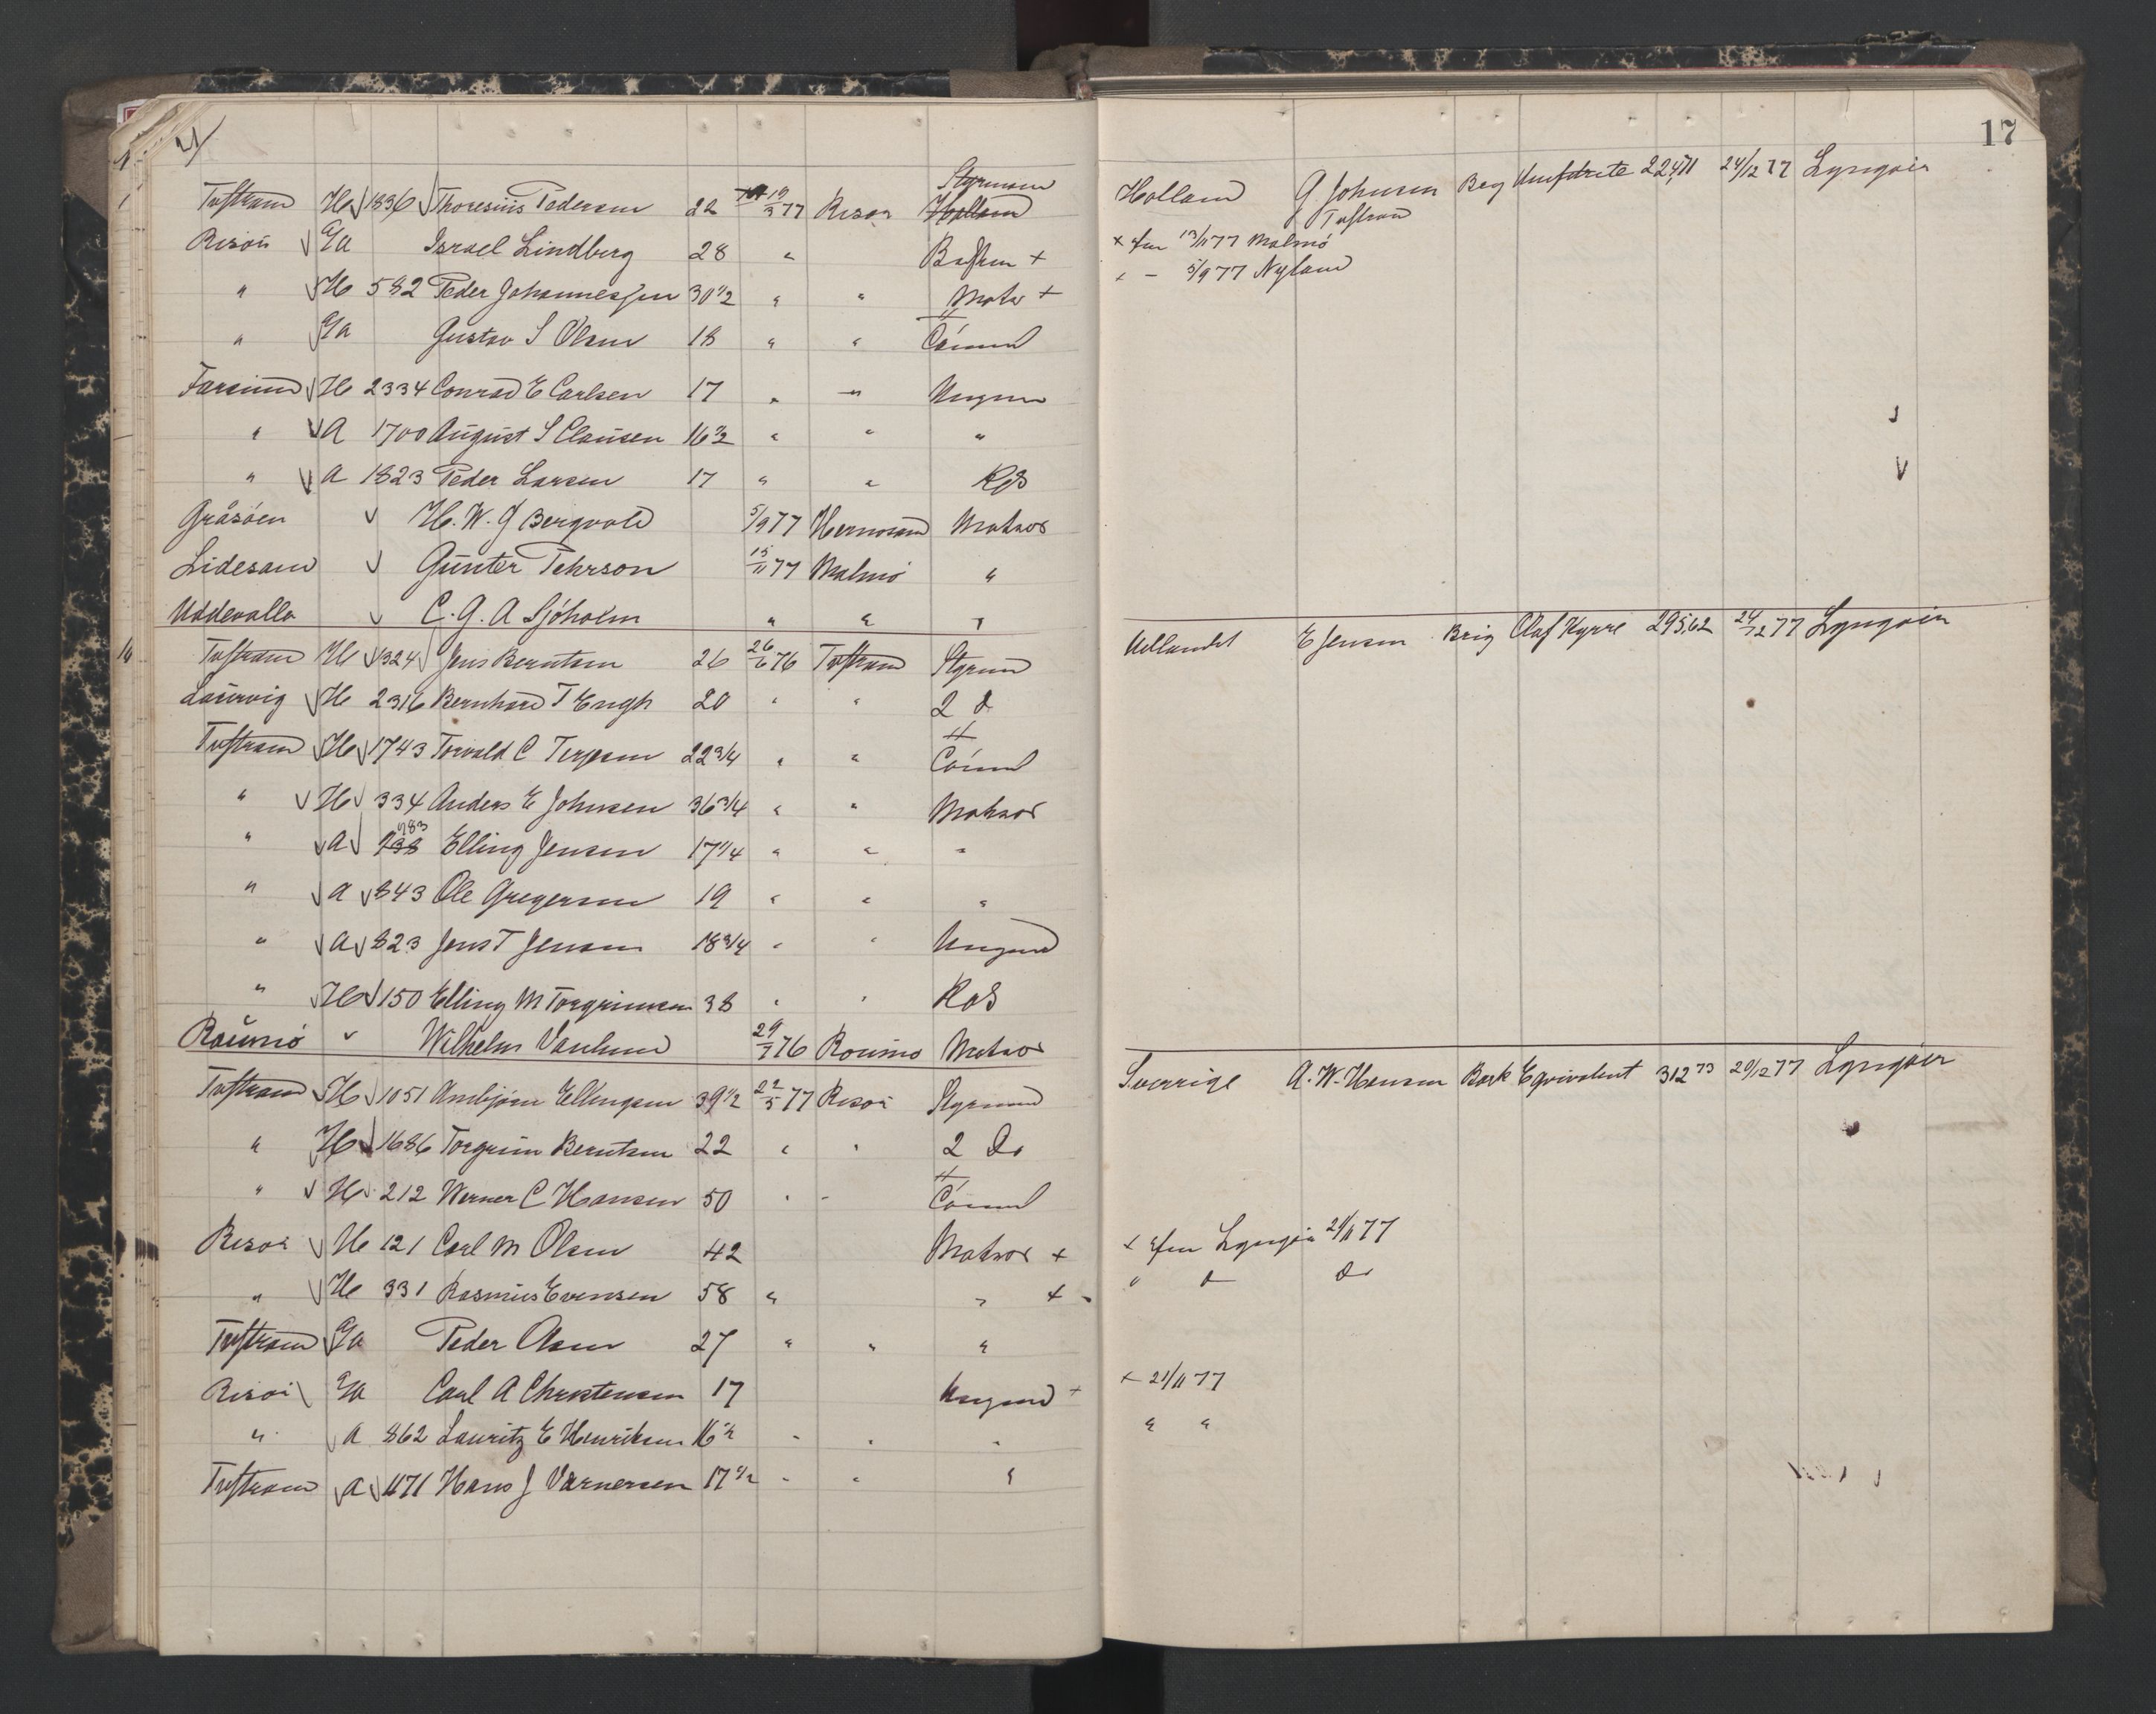 17
Styrmand
Tvestrand H 1836 Thoresius Pedersen 22 19/3 77 Risør Holland G Johnsen 224,71 24/12 77 Lyngøer
Tvestrand
Risöer E/a Israel Lindberg 28 " + 13/11 77 Malmö
" H 582 Peder Johannessen 30 1/2 " " Matr + - 5/9 77 Nyland
" E/a Gustav S Olsen 18 " "
Farsund H 2334 Conrad E Carlsen 17 " "
" A 1700 August S Clausen 16 1/2 " " "
" A 1823 Peder Larsen 17 " " K&S
Gråsöen H. W. J Bergvold 5/9 77 Hernosand Matros
Lidesand Günter Pehrson 15/11 77 Malmö "
Uddevalla C. G. A Sjöholm " " "
Tvestrand H 324 Jens Berntsen 26 26/6 76 Tvestrand Styrmd Udlandet E Jensen Brig Olaf Kyrre 295,62 24/12 77 Lyngøer
Laurvig H 2316 Bernhard T Engh 20 " " 2 d
Tvestrand H 1743 Torvald C Terjesen 22 3/4 " "
" H 334 Anders E Johnsen 36 3/4 " " Matros
" A 983 Elling Jensen 17 1/4 " " "
" A 843 Ole Gregersen 19 " " "
" A 823 Jens T Jensen 18 3/4 " " Ungmd
" H 150 Elling M Torgrimsen 38 " " K&S
Raumö Wilhelm 29/7 76 Raumo Matros
Tvestrand H 1051 Anbjörn Ellingsen 39 1/2 22/5 77 Risør Styrmand Sverrige A. W. Hansen Bark Eqvivalent 312 73 20/12 77 Lyngøer
" H 1686 Torgrim Berntsen 22 " " 2 Do
" H 212 Werner C Hansen 50 " "
Risør H 121 Carl M Olsen 42 Matros + + Lyngør 21/11 77
" H 331 Rasmus Evensen 58 " " + " d do
Tvestrand E/a Peder Olsen 27 " " "
Risør E/a Carl A Christensen 17 Ungmd + + 21/11 77
" A 862 Lauritz E Henriksen 16 1/2 " " " " "
Tvestrand A 1171 Hans J Varnersen 17 1/2 " " "